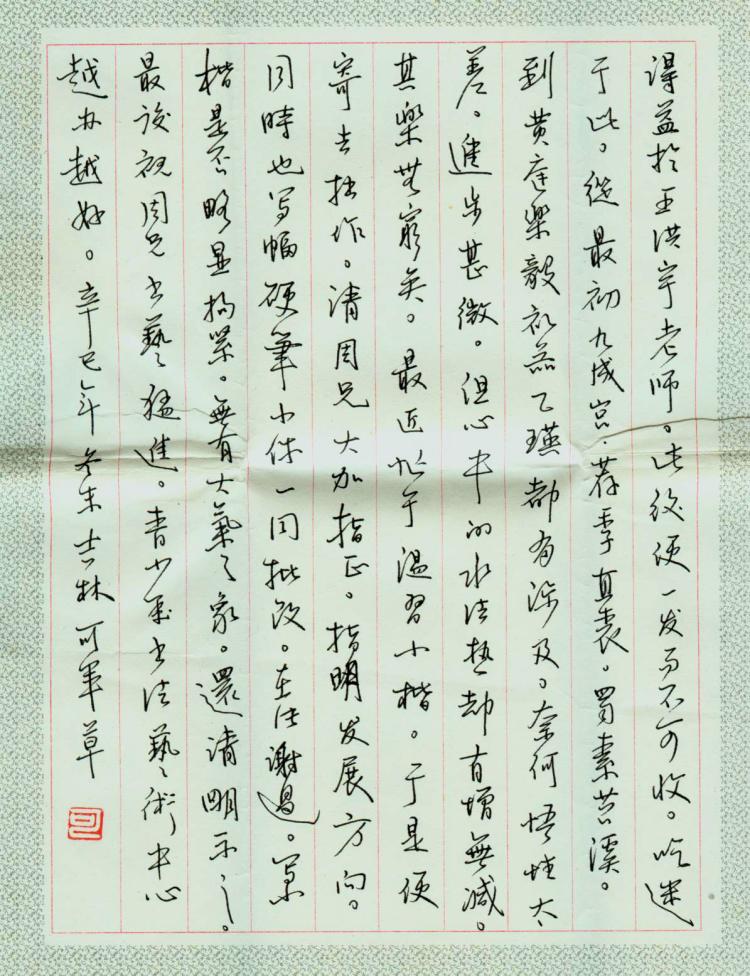 得益於王洪宇老师。此後便一发而不可收。吃迷
于此。從最初九成宫.荐季直表。蜀素苕溪。
到黄庭樂毅礼器乙瑛都有涉及。奈何悟性太
差。進步甚微。但心中的书法热却有增無减。
其樂無窮矣。最近忙于温習小楷。于是便
寄去拙作。请周兄大加指正。指明发展方向。
同時也写幅硬筆小作一同批改。在谢過。
楷是否略显拘紧。無有大氣之象。還请明示之。
最後祝周兄书藝猛進。青少年书法藝術中心
越办越好。辛巳年冬末吉林可军草